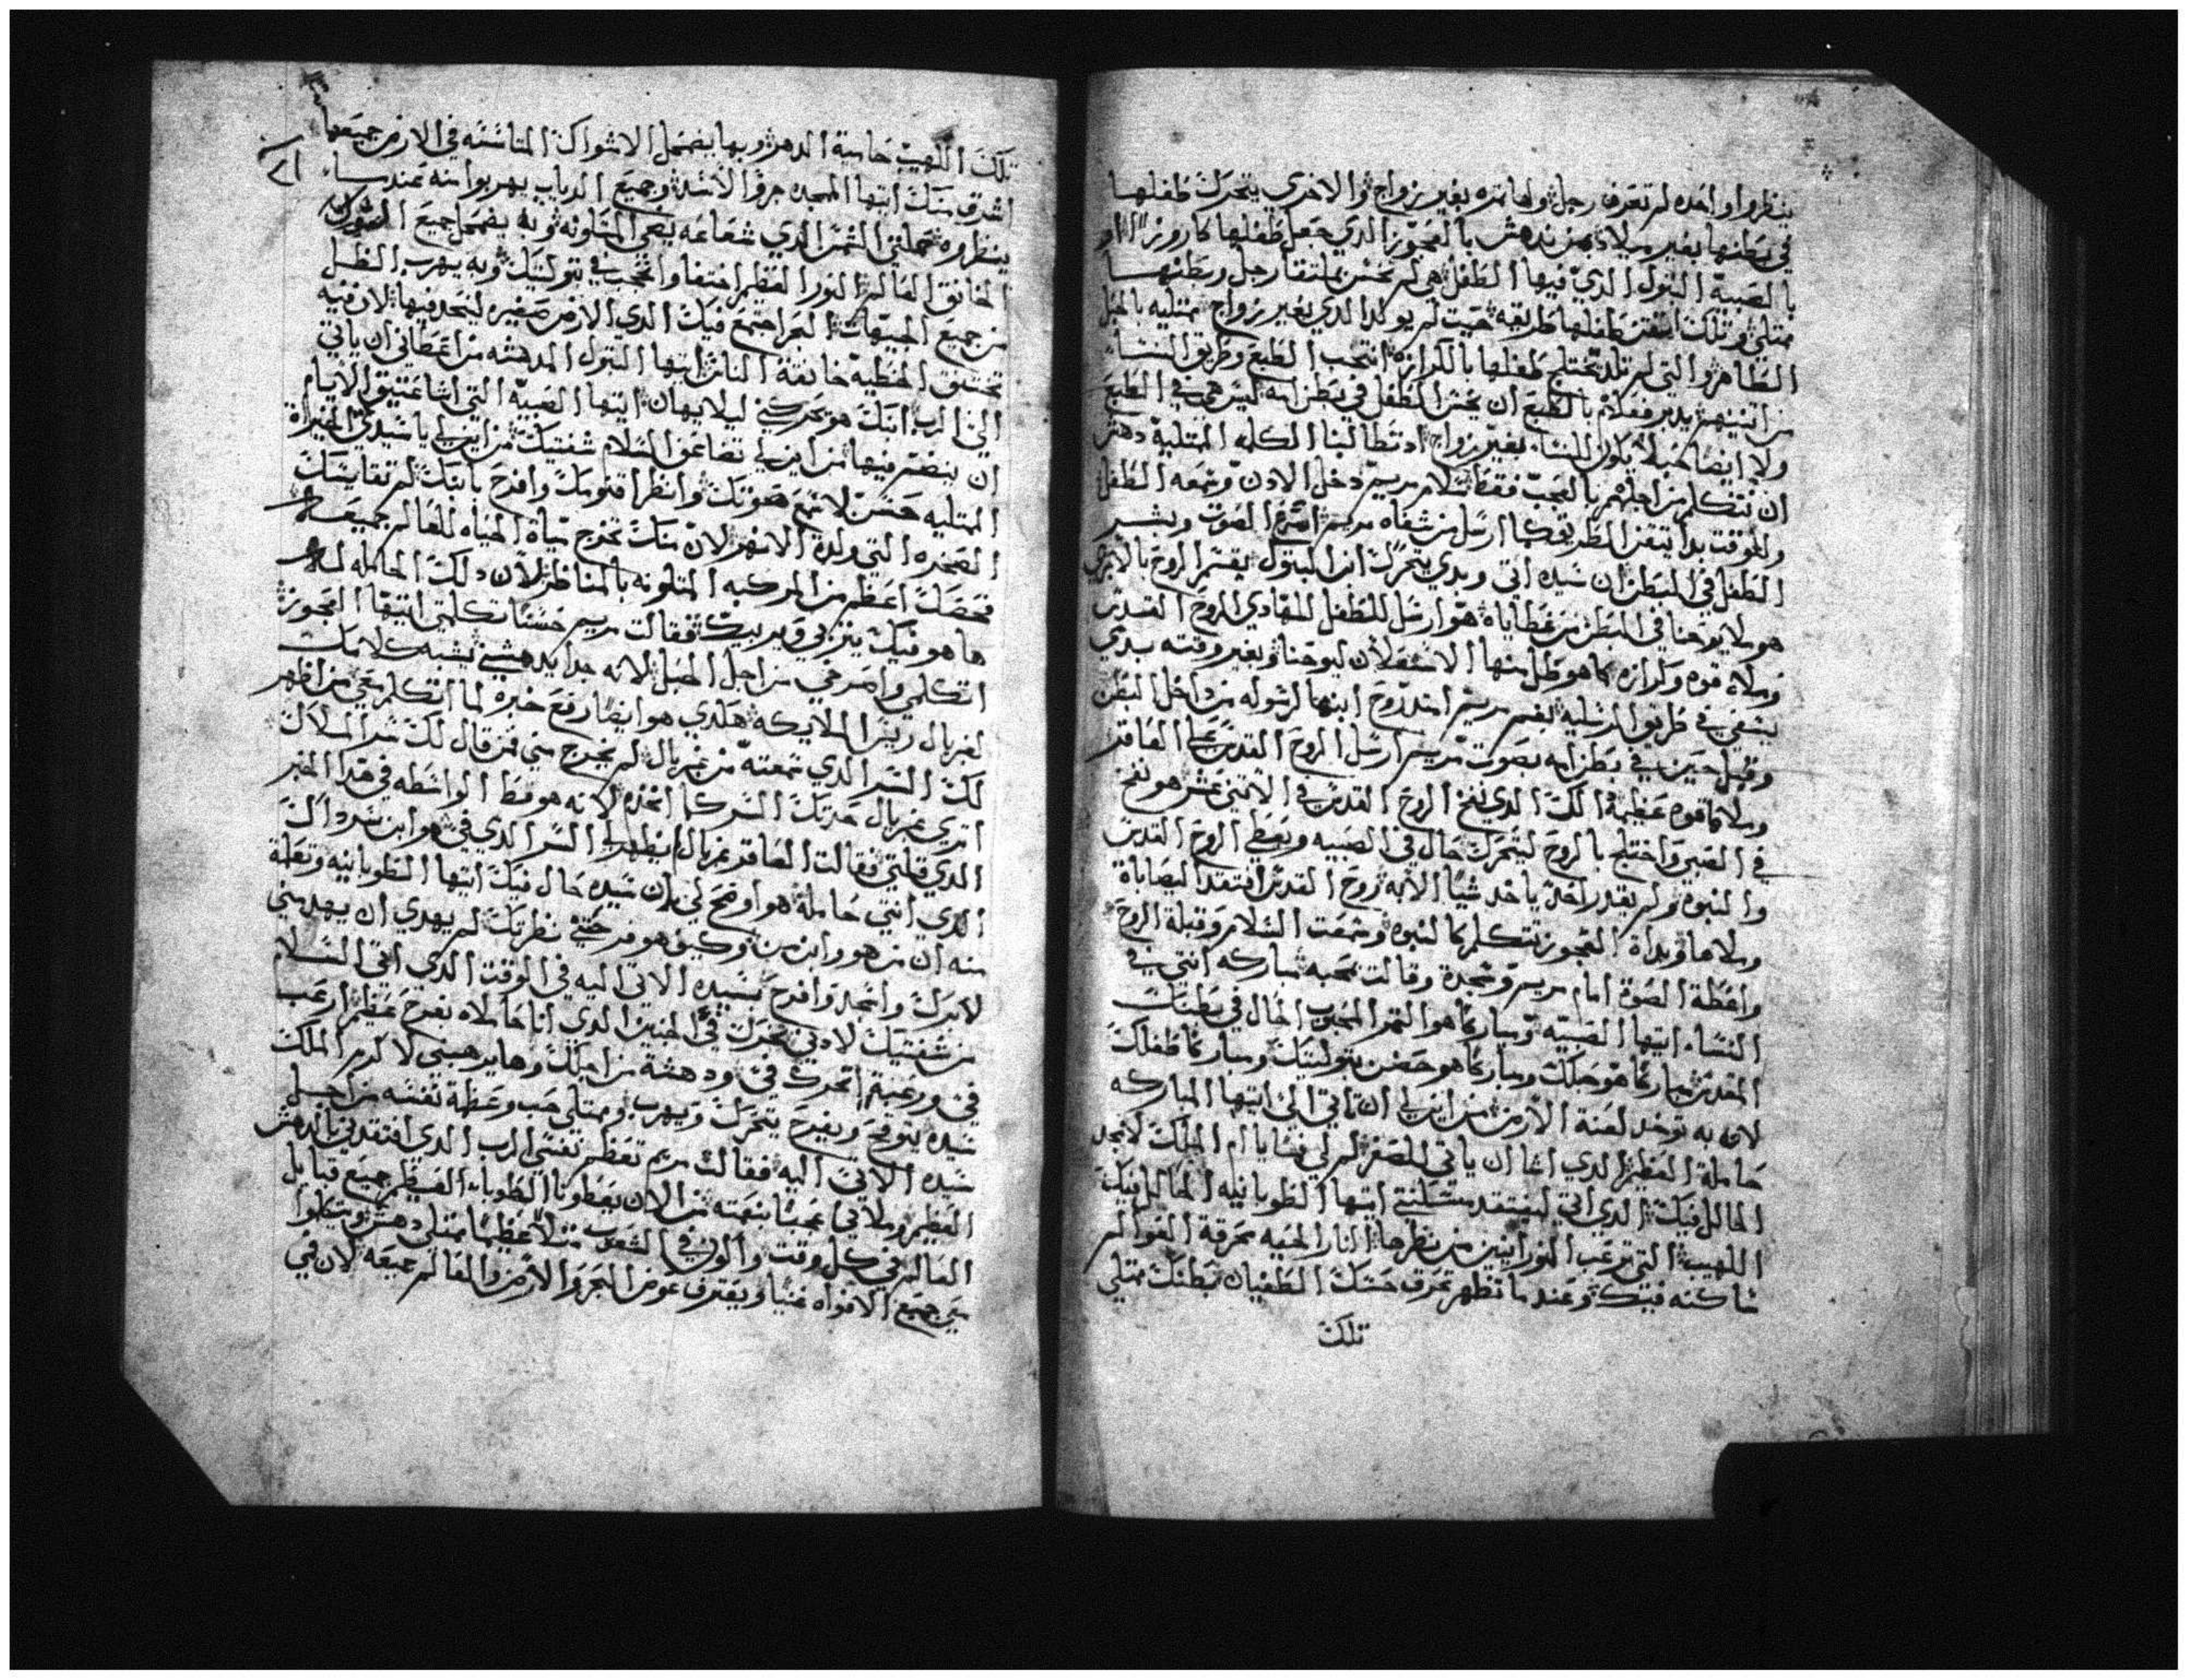 ينظروا واحده لم تعرف رجل ولها تمره بغير زواج والاخري يتحرك طفلها
في بطنها بغير ميلاد بمن ندهش بالعجوز الذي جعل طفلها كاروز او
بالصبية البتول الذي فيها الطفل هي لم تحس بملتقا رجل وبطنها
ممتلي وتلك اتقن طفلها طريقه حيت لم يولد الذي بغير زواج ممتليه بالحبل
الطاهر والتي لم تلد تختلج طفلها بالكرازه انتحب الطبع وطريق النسا
من اتنينهم فعلام بالطبع ان يحس الطفل في بطن امه ليس هي في الطبع
ولا ايضا حبلا يكون للنساء بغير زواج اد تطالبنا الكلمه الممتلية دهش
ان نتكلم من اجلهم بالعجب فقط سلام مريم دخل الادن وسمعه الطفل
وللوقت بدا يتقن الطريق كما ارسل من شفاه مريم الصوت وبشر
الطفل في البطن ان سيده اتي وبدي يتحرك ابن البتول الروح
هو ملا يوحنا في البطن من عطاياه هو ارسل للطفل للهادي الروح القدس
وملاه قوه وكرازه كما هو طل منها الاستعلان ليوحنا وبغير وقته بدي
يسعي في طريق ارسليه بفم مريم روح ابنها لرسوله من داخل البطن
وقبل حين في بطن امه بصوت مريم ارسل الروح القدس علي العاقر
وملاها قوه عظيمه داك الذي نفخ الروح القدس في الاتني عشر هو نفخ
في الصبي واختلج بالروح ليتحرك حال في الصبيه ويعطي الروح القدس
والنبوه ولم يقدر احد ياخد شيا الا به روح القدس افتقد اليصاباة
وملاها وبداة العجوز تتكلم بالنبوه وسمعت السلام وقبلة الروح
واعطة الصوة امام مريم وسجدة وقالت بمحبه مباركه انتي في
النساء ايتها الصبيه ومباركا هو التمر المجرب الحال في بطنك
المقدس مباركا هو حبلك ومباركا هو حصن بتوليتك ومباركا طفلك
لان به توخد لعنة الارض من اين لي ان تاتي الي ايتها المباركه
حاملة العظيم الذي اشا ان ياتي للصغر لم لي يا ام الملك لانجد
الحال فيك الذي اتي ليفتقد مسكنتي ايتها الطوبانيه الحال فيك
اللهيب التي ترعب النورانيين من نظرها النار الحيه محرقة العوالم
ساكنه فيك وعند ما تظهر تحرق حسك الطغيان بطنك ممتلي
تلك
تلك اللهيب حاسة الدهر وبها يضمحل الاشواك المتاسسه في الارض جميعها
اشرق منك ايتها الممجده جرو الاسد وجميع الدياب يهربوا منه عندما
ينظروه حملتي الشمس الذي شعاعه يضي المتلونه وبه يضمحل جميع الشوك
الخانق العالم النور العظيم اختفا واتحجب في بتوليتك وبه يهرب الظل
من جميع الجهات البحر اجتمع فيك الذي الارض صغيره ليتحد فيها لان فيه
تختنق الخطيه خانقة الناس ايتها البتول المدهشه من اعطاني ان ياتي
الي الرب ابنك هو تحركي ليلا يهان ايتها الصبيه التي اشا عتيق الايام
ان ينضر فيها من اين لي تضاعف السلام شفتيك من اين لي يا سيدتي الجيزاة
الممتليه حسن لاسمع صوتك وانظر اقنومك وافرح بابنك لم تقايسك
الصخره التي ولدة الانهر لان منك تخرج مياة الحياه للعالم جميعه
فحصلت اعظم من المركبه المتلونه بالمناظر لان دلك الحامله لها
ها هو فيك يتربي ويربيك فقالت مريم حسنا تكلمتي ايتها العجوز
اتكلمي وامرحي من اجل الحبل لانه جدا يدهشني نشبه كلامك
لغبريال ريس الملايكه هلدي هو ايضا رفع خبره لما اتكلم معي من اظهر
لك السر الدي سمعته من غبريال لم يخرج مني فمن قال لك سر الملاك
اتري غبريال حدتك السر كما اتخده لانه هو فقط الواسطه في هدا الخبر
الذي قلتي فقالت العاقر غبريال لم يظهر لي السر الذي في هو ابن سر داك
الذي انتي حاملة هو اوضح لي ان سيده حال فيك ايتها الطوبانيه وتعلمة
منه ان من هو وابن من وكيف هو مرحتي نظرتك لم يهدي ان يهدسني
لادرك واسجد وافرح بسيده الاتي اليه في الوقت الذي اتي السلام
من شفتيك لادني تحرك في الجنين الذي انا حامله بفرح عظيم ارعب
في ورعبة اتحرك في ودهشة من اجلك وهايرهبني لاكرم الملك
سيده يتوقع ويفرح يتحرك ويهرب وممتلي حب وعظة نفسه من اجل
سيده الاتي اليه فقالت مريم تعظم نفسي الرب الذي افتقدني بالدهش
العظيم وملا في عجبا بنعمته من الان يعطونا الطوباء العظيم جميع قبايل
العالم في كل وقت واكون في الشعوب متلا عظيما ممتلي دهش ويتكلوا
بي جميع الافواه غنيا ويعترف عوض البحر والارض والعالم جميعه لان في